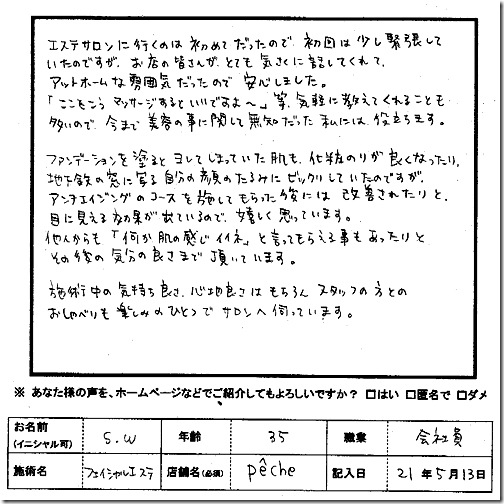 エステサロンに行くのは初めてだったので、初回は少し緊張して
いたのですが、お店の皆さんが、とても気さくに話してくれて、
アットホームな雰囲気だったので安心しました。
「ここをこう マッサージするといいですよ〜」等、気軽に教えてくれることも
多いので、今まで美容の事に関して無知だった私には、役立ちます。
ファンデーションを塗るとヨレてしまっていた肌も、化粧のりが良くなったり、
地下鉄の窓に写る自分の顔のたるみにビックリしていたのですが、
アンチエイジングのコースを施してもらった後には 改善されたりと、
目に見える効果が出ているので、嬉しく思っています。
他人からも「何か肌の感じイイネ」と言ってもらえる事もあったりと
その後の気分の良さまで頂いています。
施術中の気持ち良さ、心地良さはもちろん スタッフの方との
おしゃべりも楽しみのひとつで サロンへ伺っています。
※ あなた様の声を、ホームページなどでご紹介してもよろしいですか? □はい □匿名で □ダメ
お名前 (イニシャル可) S.W 年齢 35 職業 会社員
施術名 フェイシャルエステ 店舗名(必須) pêche 記入日 21年5月13日